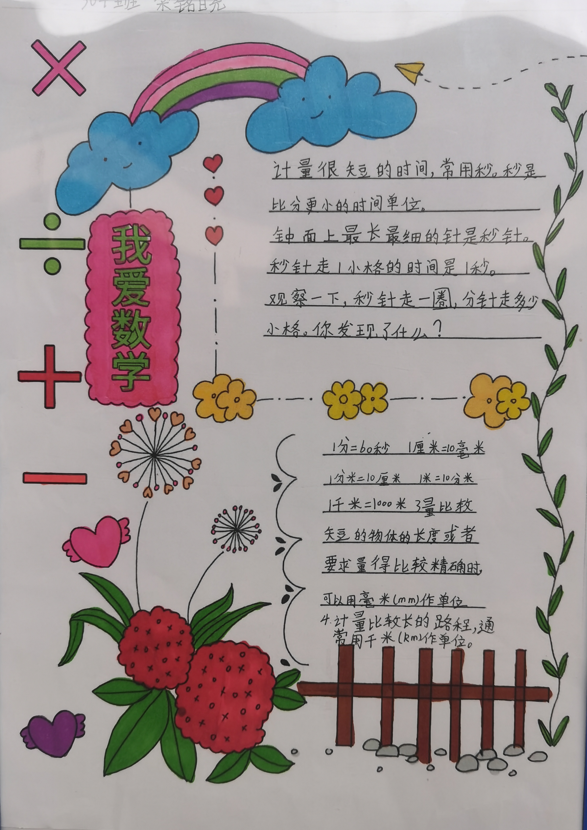 我爱数学
计量很短的时间，常用秒。秒是
比分更小的时间单位。
钟面上最长最细的针是秒针。
秒针走1小格的时间是1秒。
观察一下，秒针走一圈，分针走多少
小格。你发现了什么？
1分=60秒 1厘米=10毫米
1分米=10厘米 1米=10分米
1千米=1000米 3量比较
短的物体的长度或者
要求量得比较精确时，
可以用毫米(mm)作单位
4计量比较长的路程，通
常用千米(km)作单位。